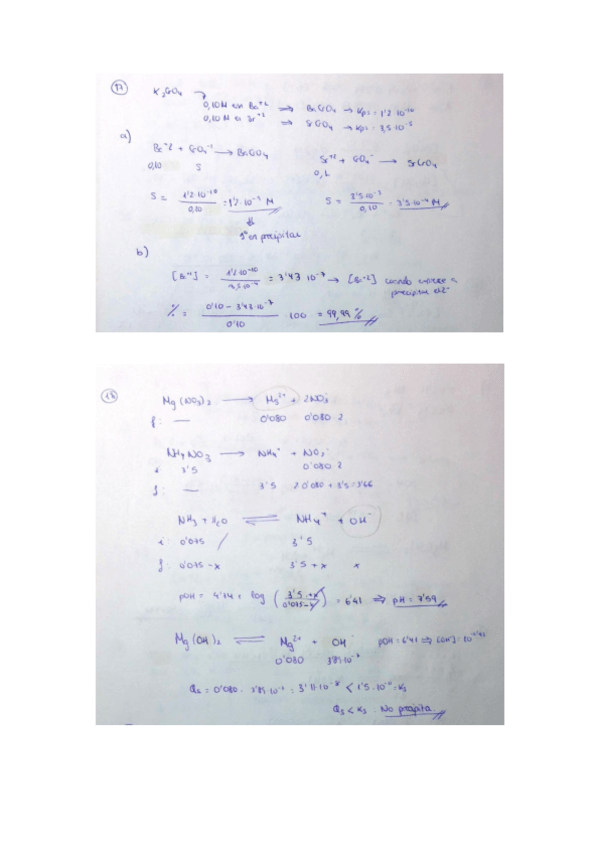 17
K2CrO4
0,10M en Ba+2 ⇒ BaCrO4 → Kps = 1'2·10-10
0,10M en Sr+2 ⇒ SrCrO4 → Kps = 3,5·10-5
a)
Ba+2 + CrO4-2 → BaCrO4
0,10 S
Sr+2 + CrO4- → SrCrO4
0,1
S = 1'2·10-10 / 0,10 = 1'2·10-9 M
S = 3'5·10-5 / 0,10 = 3'5·10-4 M
1º en precipitar
b)
[Ba+2] = 1'2·10-10 / 3,5·10-4 = 3'43·10-7 → [Ba+2] cuando empieza a
precipitar el 2º
% = 0'10 - 3'43·10-7 / 0'10 · 100 = 99,99%
18
Mg(NO3)2 → Mg2+ + 2NO3-
f: — 0'080 0'080·2
NH4NO3 → NH4+ + NO3-
i 3'5 0'080·2
f: — 3'5 2·0'080 + 3'5 = 3'66
NH3 + H2O ⇌ NH4+ + OH-
i: 0'075 / 3'5
f: 0'075-x 3'5+x x
pOH = 4'74 + log (3'5+x / 0'075-x) = 6'41 ⇒ pH = 7'59
Mg(OH)2 ⇌ Mg2+ + OH- pOH = 6'41 ⇒ [OH-] = 10-6'41
0'080 3'89·10-7
Qs = 0'080 · 3'89·10-7 = 3'11·10-8 < 1'5·10-11 = Ks
Qs < Ks No precipita